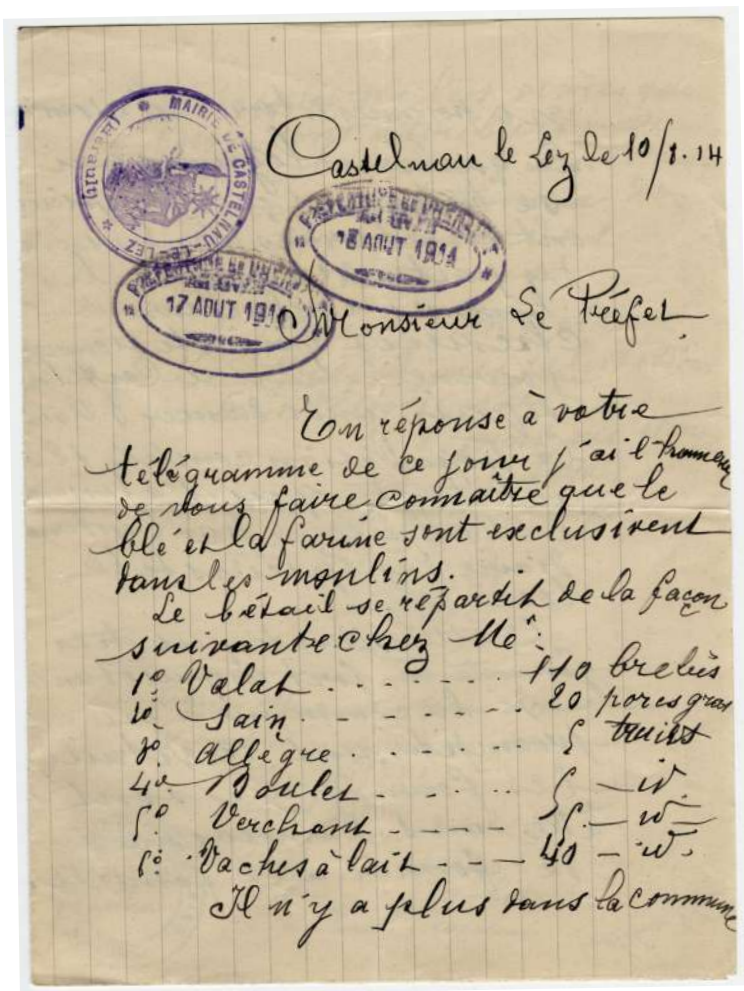 MAIRIE DE CASTELNAU-LE-LEZ (Hérault)
Castelnau le Lez le 10/8.14
PRÉFECTURE DE L'HÉRAULT
18 AOUT 1914
PRÉFECTURE DE L'HÉRAULT
17 AOUT 1914
Monsieur Le Préfet
En réponse à votre
télégramme de ce jour j'ai l'honneur
de vous faire connaître que le
blé et la farine sont exclusivent
dans les moulins.
Le bétail se répartit de la façon
suivante chez Mrs:
1º. Valat ....... 110 brebis
2º. Sain. - - - - - - 20 porcs gras
3º. Allègre ...... 5 truies
4º. Boulet - - .. 5 — id.
5º. Verchant - - - - 5. — id —
6º. Vaches à lait - - — 40 — id.
Il n'y a plus dans la commune